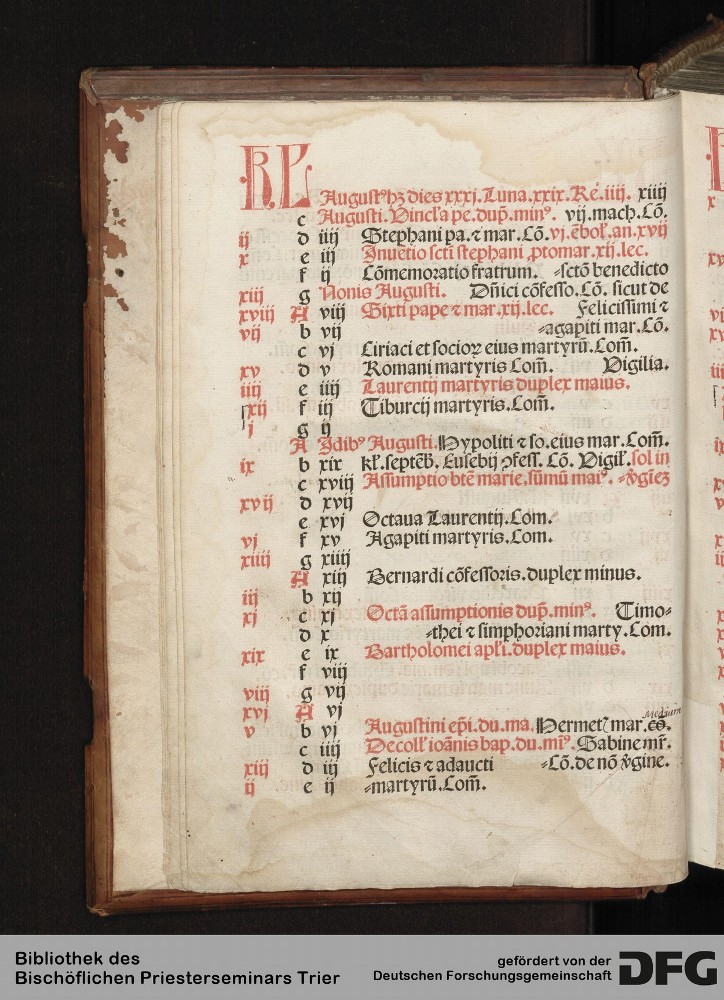 KL
Augustꝰ hꝫ dies xxxj. Luna. xxix. Re᷑. iiij. xiiij
c Augusti. Vincl'a pe. dup̄. minꝰ. vij. mach. Cō.
ij d iiij Stephani pa. ⁊ mar. Cō. vj. ēbol'. an. xvij
x e iij Inuētio scti stephani ꝓtomar. xij. lec.
f ij Cōmemoratio fratrum. ⸗sctō benedicto
xiij g Nonis Augusti. Dn̄ici cōfesso. Cō. sicut de
xviij A viij Sixti pape ⁊ mar. xij. lec. Felicissimi ⁊
vij b vij ⸗agapiti mar. Cō.
c vj Ciriaci et socioꝝ eius martyrū. Com̄.
xv d v Romani martyris Com̄. Vigilia.
iiij e iiij Laurentij martyris duplex maius.
xij f iij Tiburcij martyris. Com̄.
j g ij
A Idibꝰ Augusti. Hypoliti ⁊ so. eius mar. Com̄.
ix b xix kl'. septēb̄. Eusebij ꝯfess. Cō. Vigil'. sol in
c xviij Assumptio btē marie. sūmū maiꝰ. ⸗v̄gīeꝫ
xvij d xvij
e xvj Octaua Laurentij. Com.
vj f xv Agapiti martyris. Com.
xiiij g xiiij
A xiij Bernardi cōfessoris. duplex minus.
iij b xij
xj c xj Octā assumptionis dup̄. minꝰ. Timo⸗
d x ⸗thei ⁊ simphoriani marty. Com.
xix e ix Bartholomei apl'i. duplex maius.
f viij
viij g vij
xvj A vj
v b vj Augustini ep̄i. du. ma. Hermet᷑ mar. cō. Medium
c iiij Decoll' ioānis bap. du. mīꝰ. Sabine mr̄.
xiij d iij Felicis ⁊ adaucti ⸗Cō. de nō v̄gine.
ij e ij ⸗martyrū. Com̄.
Bibliothek des
Bischöflichen Priesterseminars Trier
gefördert von der
Deutschen Forschungsgemeinschaft
DFG